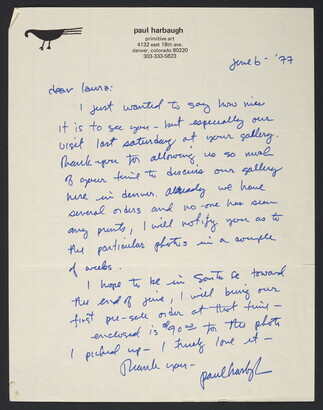 paul harbaugh
primitive art
4132 east 18th ave.
denver, colorado 80220
303-333-5823
June 6 - '77
dear Laura:
I just wanted to say how nice
it is to see you - but especially our
visit last saturday at your gallery.
Thank-you for allowing us so much
of your time to discuss our gallery
here in denver. Already we have
several orders and no-one has seen
any prints, I will notify you as to
the particular photos in a couple
of weeks.
I hope to be in Santa Fe toward
the end of june, I will bring our
first pre-sale order at that time -
enclosed is $90.00 for the photo
I picked up - I truely love it -
Thank you -
paul harbaugh